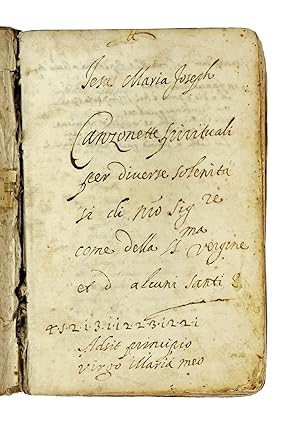 Jesus Maria Joseph
Canzonette spirituali
per diverse solenità
di nro Sig re
come della ma Vergine
et d' alcuni santi
4 5 2 1 3 1 1 2 2 3 1 2 2 1
Adsit principio
virgo Maria meo